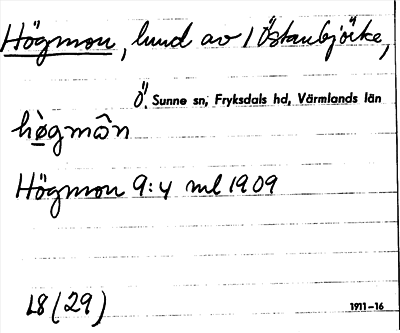 Högmon, lund av 1 Östanbjörke,
Ö. Sunne sn, Fryksdals hd, Värmlands län
hö̀gmôn
Högmon 9:4 ml 1909
L8 (29)
1911-16